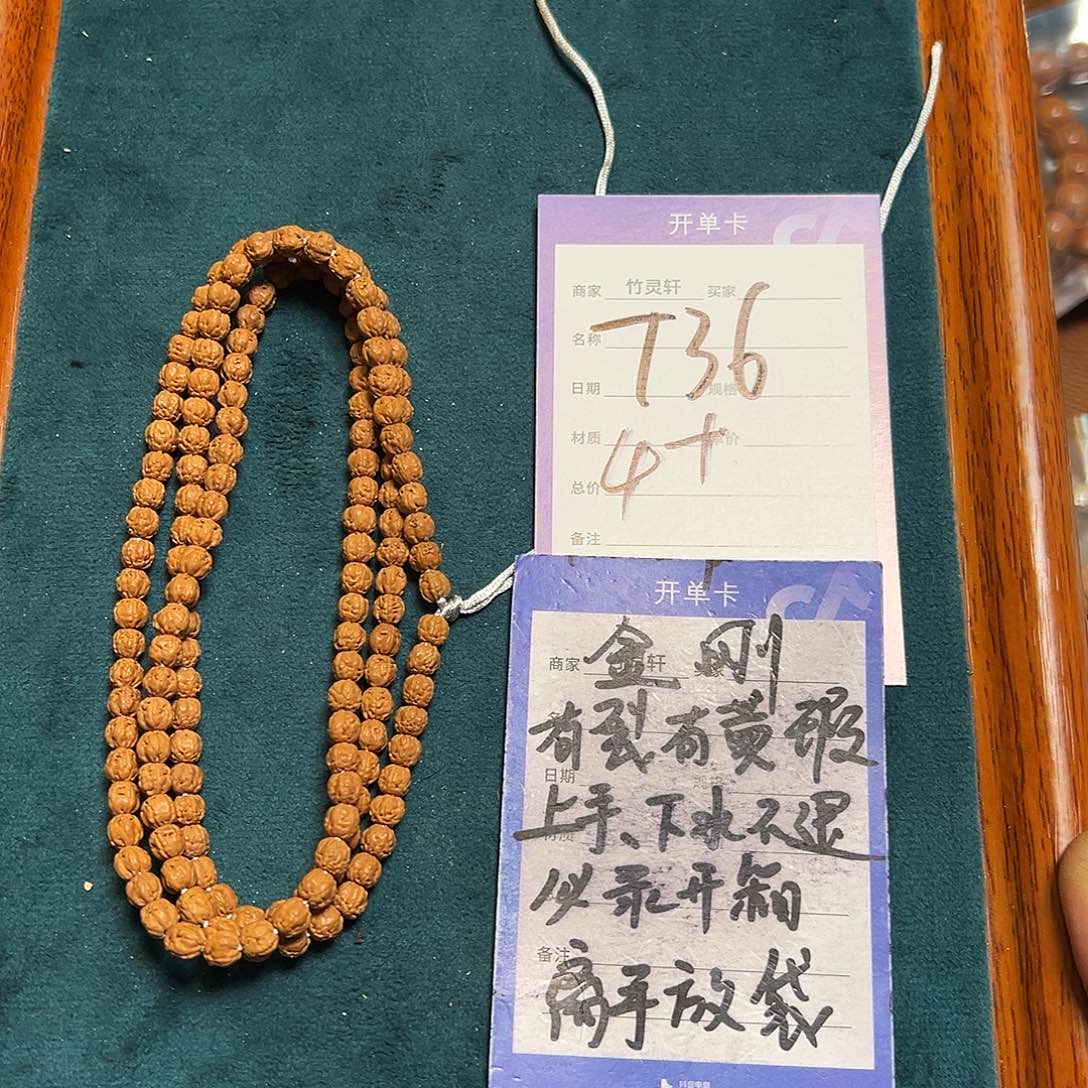 开单卡
商家 竹灵轩 买家
名称
T36
日期 规格
材质 单价
4+
总价
备注
开单卡
商家 轩 买家
金刚
有裂有黄瑕
日期
上手、下水不退
材质
必录开箱
备注
离手放袋
抖音电商